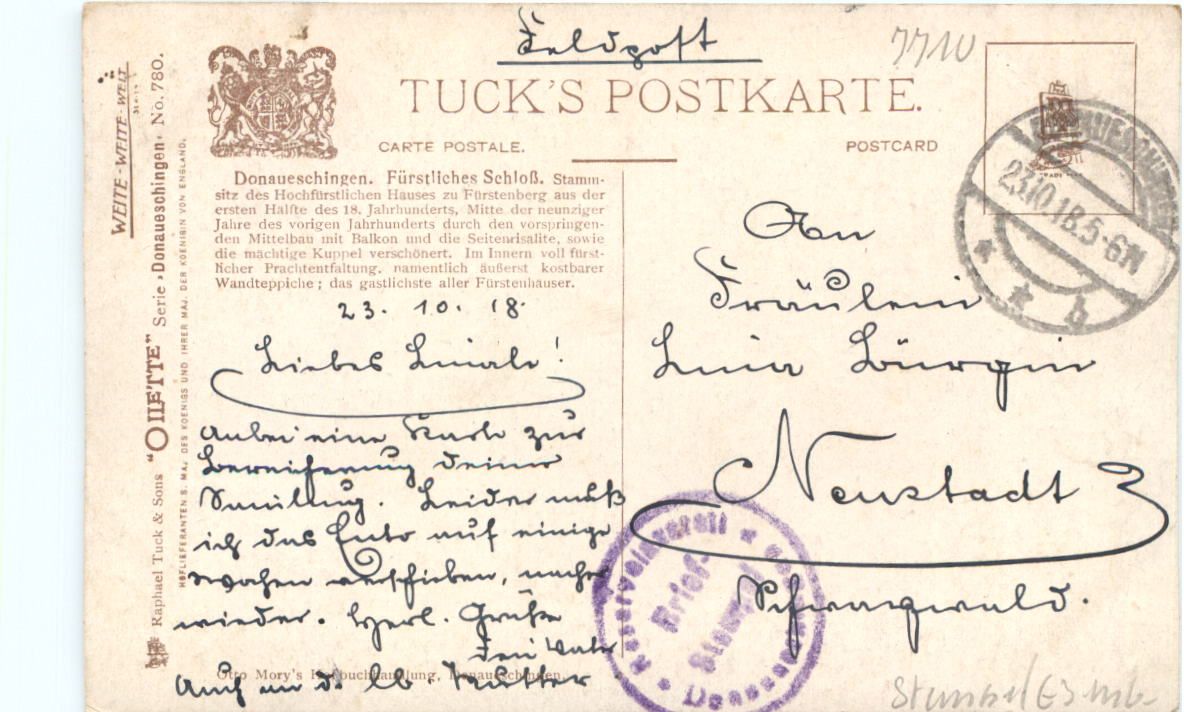 Feldpost
7710
TUCK'S POSTKARTE.
CARTE POSTALE.
POSTCARD
WEITE-WEITE-WELT
Raphael Tuck & Sons "OILETTE" Serie „Donaueschingen“ No. 780.
HOFLIEFERANTEN S. MAJ. DES KOENIGS UND IHRER MAJ. DER KOENIGIN VON ENGLAND.
Donaueschingen. Fürstliches Schloß. Stamm-
sitz des Hochfürstlichen Hauses zu Fürstenberg aus der
ersten Hälfte des 18. Jahrhunderts, Mitte der neunziger
Jahre des vorigen Jahrhunderts durch den vorspringen-
den Mittelbau mit Balkon und die Seitenrisalite, sowie
die mächtige Kuppel verschönert. Im Innern voll fürst-
licher Prachtentfaltung, namentlich äußerst kostbarer
Wandteppiche; das gastlichste aller Fürstenhäuser.
23. 10. 18.
Liebes Linale!
Anbei eine Karte zur
Bereicherung deiner
Samlung. Leider muß
ich das Auto auf einige
Wochen verschieben, nachher
wieder. Herzl. Grüße
Dein Vater
Auch an d. lb. Mutter
Otto Mory's Hofbuchhandlung, Donaueschingen.
An
Fräulein
Lina Bürgin
Neustadt
Schwarzwald.
DONAUESCHINGEN
23.10.18.5-6N
* * b
Reservelazarett
Brief-
Stempel